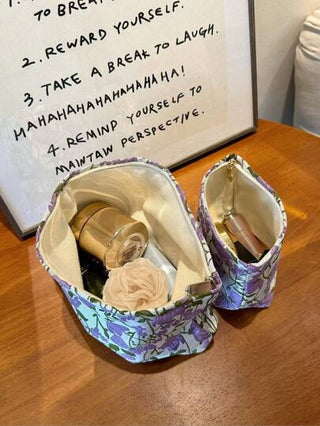 TO BREA
2. REWARD YOURSELF.
3. TAKE A BREAK TO LAUGH.
HAHAHAHAHAHAHAHAHA!
4. REMIND YOURSELF TO
MAINTAIN PERSPECTIVE.